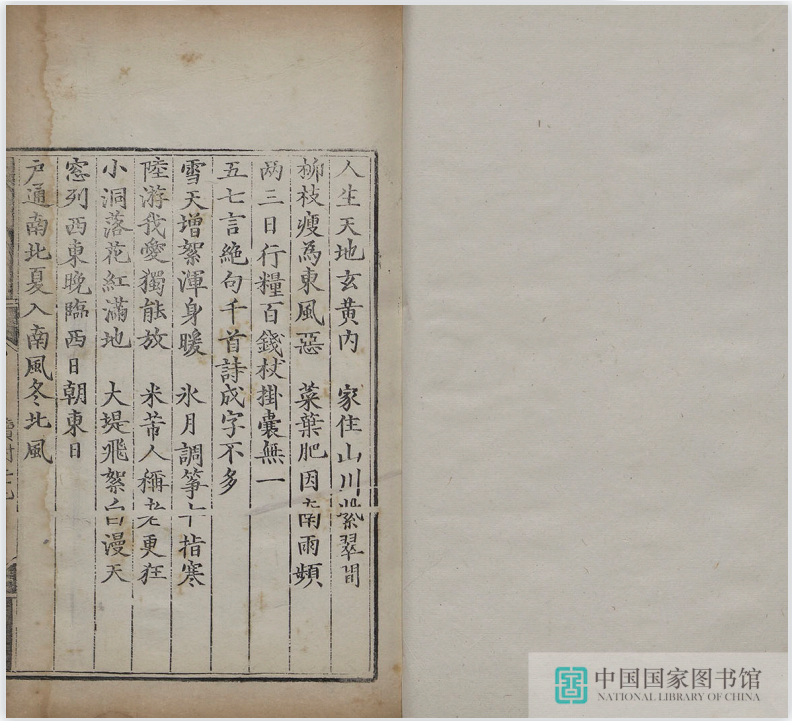 人生天地玄黃内　家住山川紫翠間
柳枝瘦為東風惡　菜葉肥因南雨頻
两三日行糧百錢杖掛囊無一
五七言絶句千首詩成字不多
雪天增絮渾身暖　氷月調箏十指寒
陸游我愛獨能放　米芾人稱老更狂
小洞落花紅滿地　大堤飛絮白漫天
窓列西東晚臨西日朝東日
户通南北夏入南風冬北風
中国国家图书馆
NATIONAL LIBRARY OF CHINA